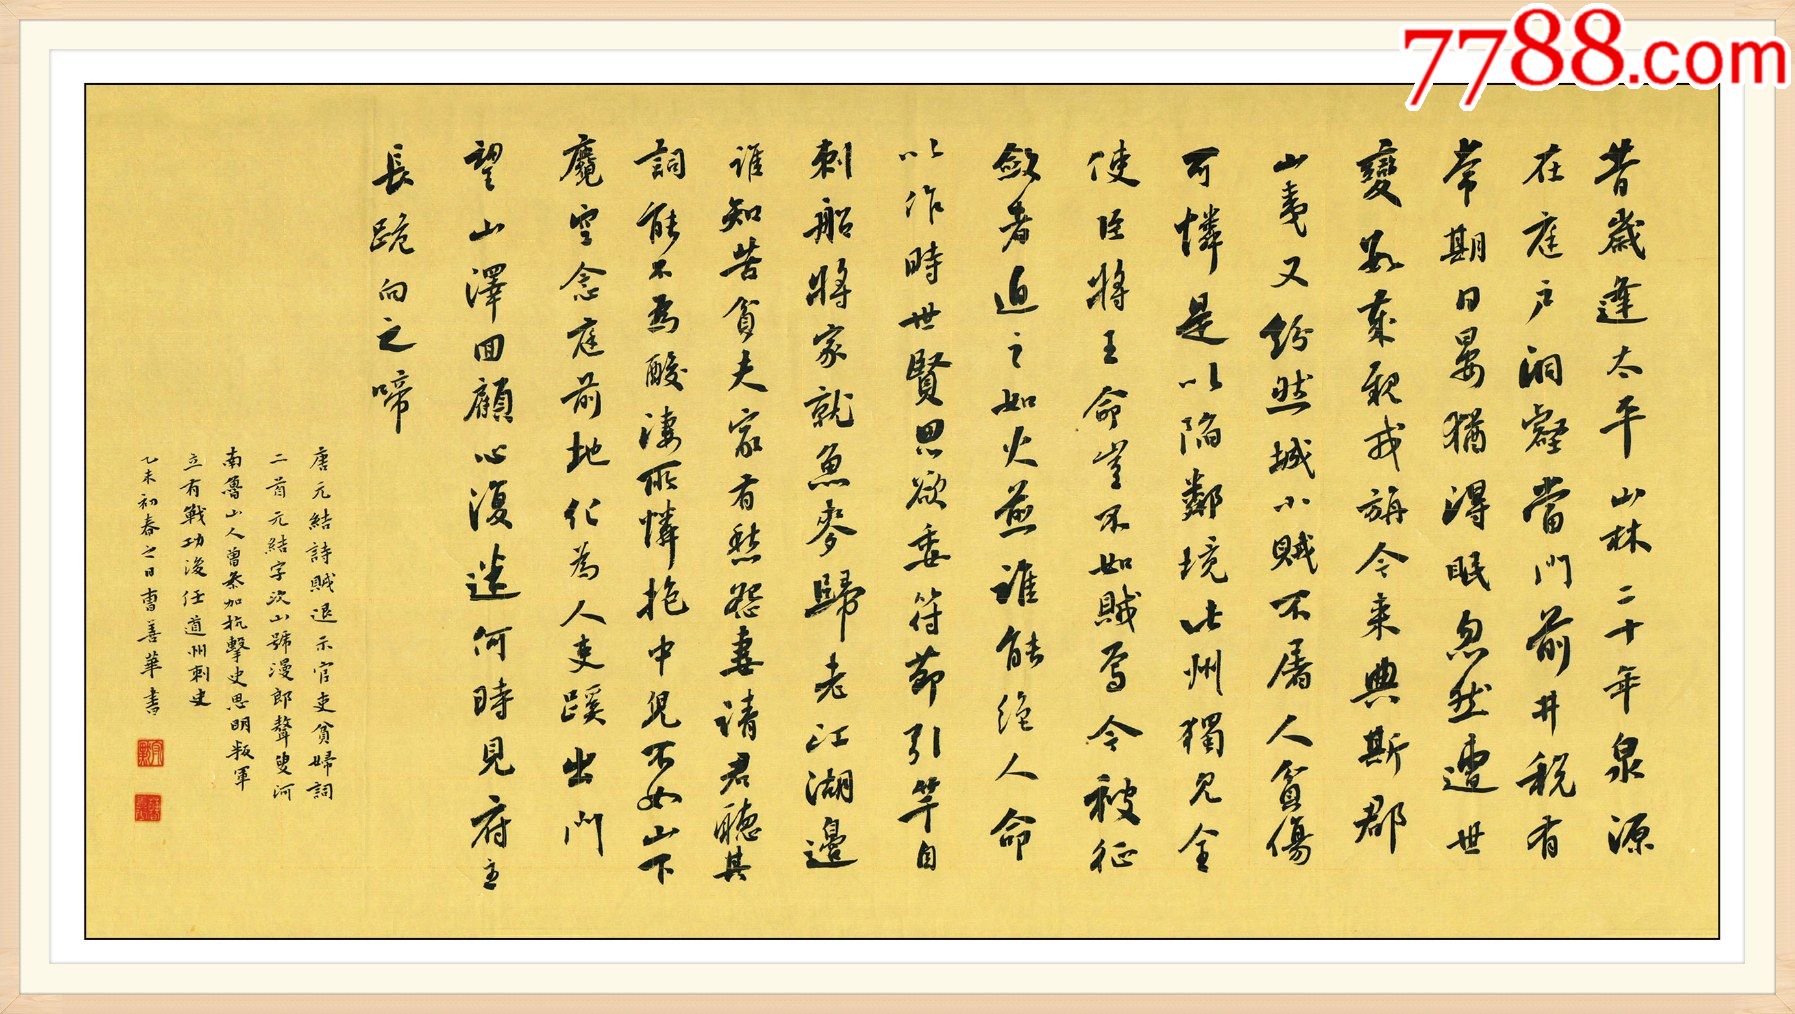 昔歲逢太平山林二十年泉源
在庭戶洞壑當門前井稅有
常期日晏猶得眠忽然遭世
變數歲親戎旃今來典斯郡
山夷又紛然城小賊不屠人貧傷
可憐是以陷鄰境此州獨見全
使臣將王命豈不如賊焉今被征
斂者迫之如火煎誰能絕人命
以作時世賢思欲委符節引竿自
刺船將家就魚麥歸老江湖邊
誰知苦貧夫家有愁怨妻請君聽其
詞能不為酸淒所憐抱中兒不如山下
麑空念庭前地化為人吏蹊出門
望山澤回顧心復迷何時見府主
長跪向之啼
唐元結詩賊退示官吏貧婦詞
二首元結字次山號漫郎聱叟河
南魯山人曾參加抗擊史思明叛軍
立有戰功後任道州刺史
乙未初春之日曹善華書
7788.com